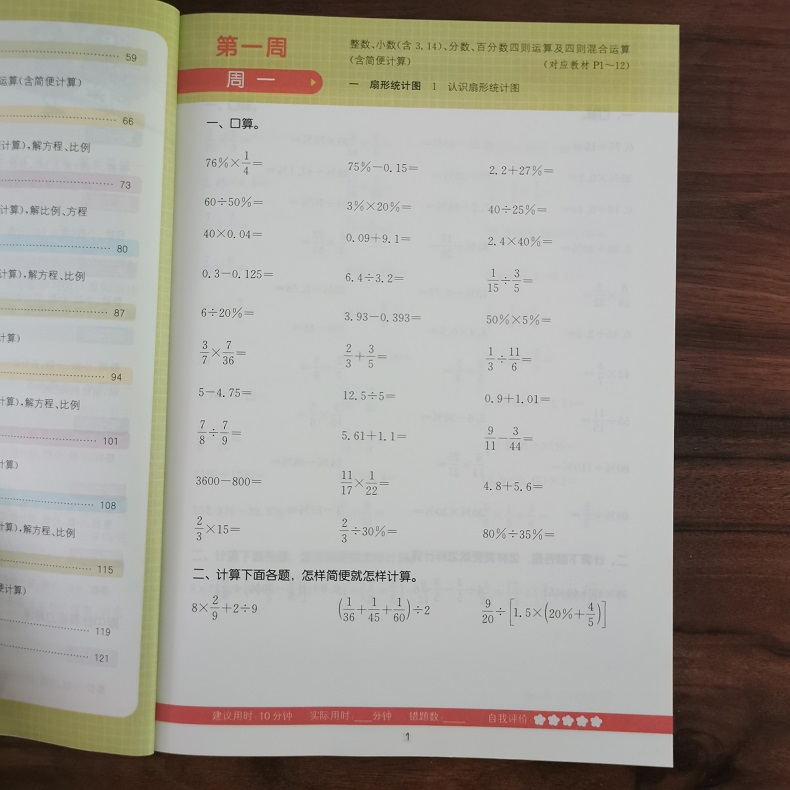 59
运算(含简便计算)
66
计算),解方程、比例
73
计算),解比例、方程
80
计算),解方程、比例
87
计算)
94
计算),解方程、比例
101
计算)
108
计算),解方程、比例
115
便计算)
119
121
第一周
整数、小数(含3.14)、分数、百分数四则运算及四则混合运算
(含简便计算) (对应教材 P1~12)
周一
一 扇形统计图 1 认识扇形统计图
一、口算。
76%×1/4= 75%-0.15= 2.2+27%=
60÷50%= 3%×20%= 40÷25%=
40×0.04= 0.09+9.1= 2.4×40%=
0.3-0.125= 6.4÷3.2= 1/15÷3/5=
6÷20%= 3.93-0.393= 50%×5%=
3/7×7/36= 2/3+3/5= 1/3÷11/6=
5-4.75= 12.5÷5= 0.9+1.01=
7/8÷7/9= 5.61+1.1= 9/11-3/44=
3600-800= 11/17×1/22= 4.8+5.6=
2/3×15= 2/3÷30%= 80%÷35%=
二、计算下面各题，怎样简便就怎样计算。
8×2/9+2÷9 (1/36+1/45+1/60)÷2 9/20÷[1.5×(20%+4/5)]
建议用时:10分钟 实际用时:____分钟 错题数:____ 自我评价:
1